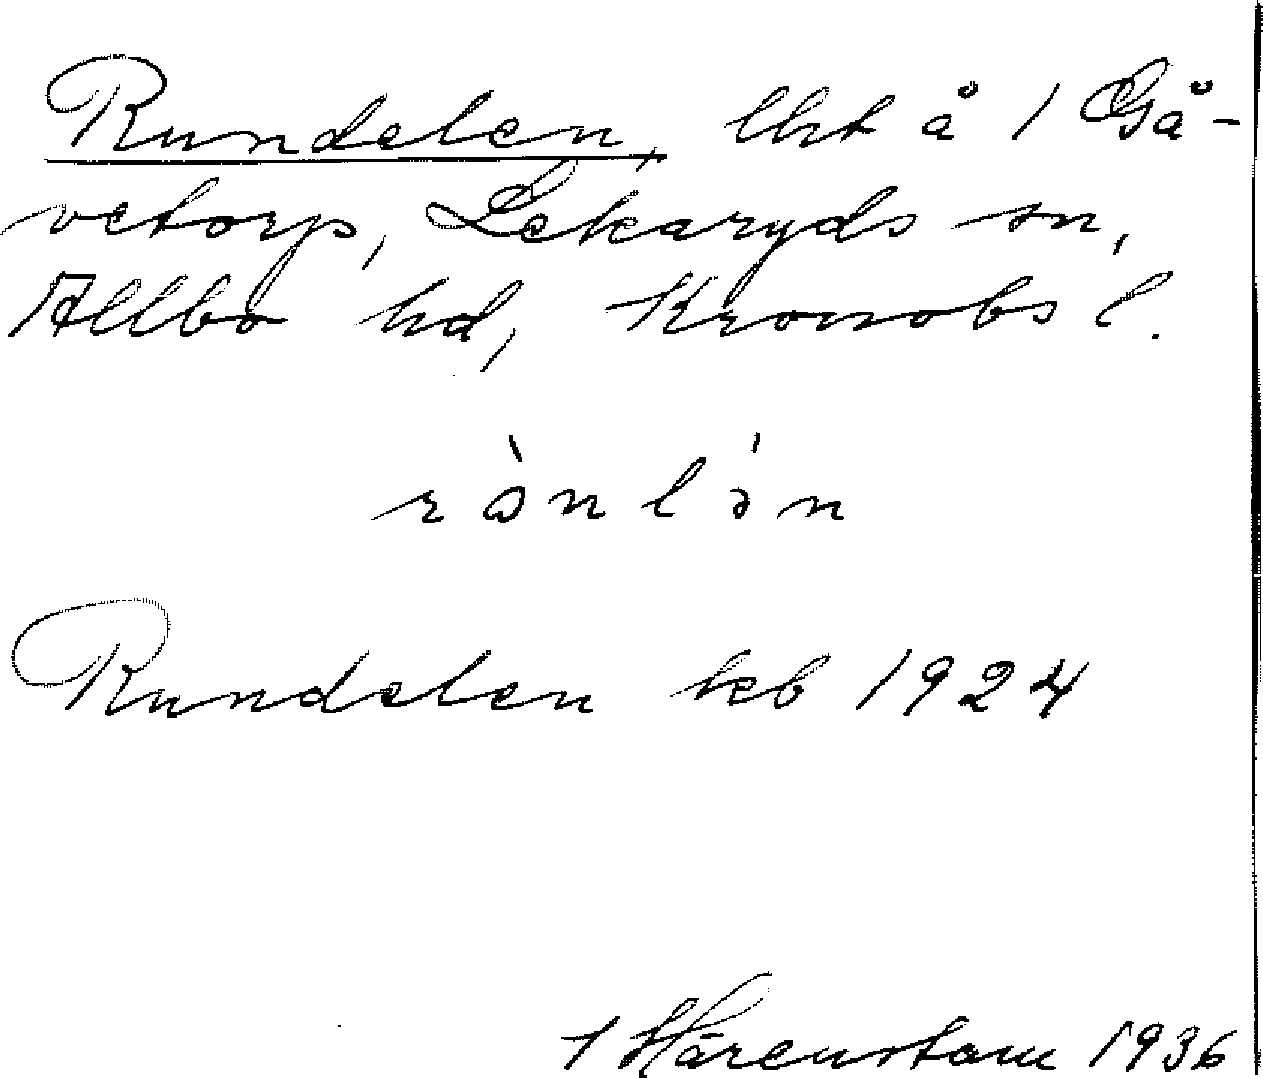 Rundelen, lht å 1 Gå-
vetorp, Lekaryds sn,
Allbo hd, Kronobs l.
rɵ̀nlə́n
Rundelen kb 1924
T Hårenstam 1936